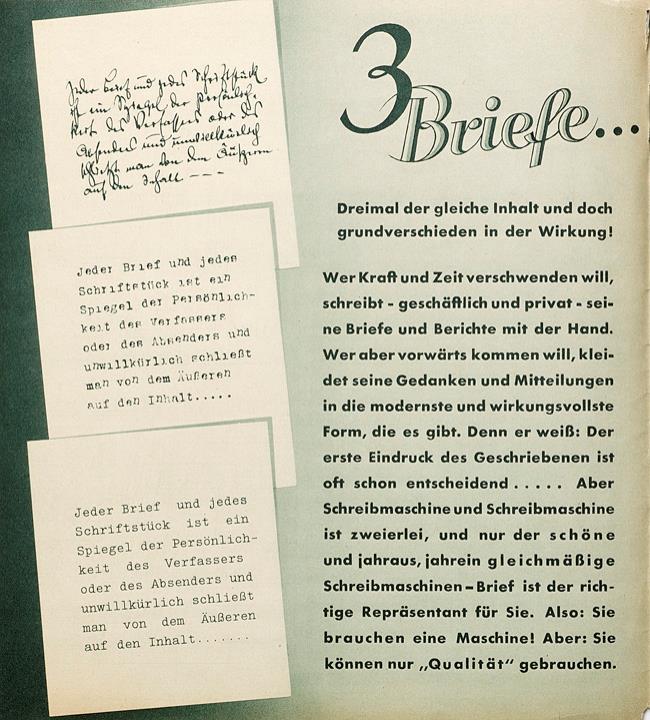 Jeder Brief und jedes Schriftstück
ist ein Spiegel der Persönlich-
keit des Verfassers oder des
Absenders und unwillkürlich
schließt man von dem Äußeren
auf den Inhalt – – –
Jeder Brief und jedes
Schriftstück ist ein
Spiegel der Persönlich-
keit des Verfassers
oder des Absenders und
unwillkürlich schließt
man von dem Äußeren
auf den Inhalt.....
Jeder Brief und jedes
Schriftstück ist ein
Spiegel der Persönlich-
keit des Verfassers
oder des Absenders und
unwillkürlich schließt
man von dem Äußeren
auf den Inhalt.......
3
Briefe...
Dreimal der gleiche Inhalt und doch
grundverschieden in der Wirkung!
Wer Kraft und Zeit verschwenden will,
schreibt - geschäftlich und privat - sei-
ne Briefe und Berichte mit der Hand.
Wer aber vorwärts kommen will, klei-
det seine Gedanken und Mitteilungen
in die modernste und wirkungsvollste
Form, die es gibt. Denn er weiß: Der
erste Eindruck des Geschriebenen ist
oft schon entscheidend ..... Aber
Schreibmaschine und Schreibmaschine
ist zweierlei, und nur der schöne
und jahraus, jahrein gleichmäßige
Schreibmaschinen-Brief ist der rich-
tige Repräsentant für Sie. Also: Sie
brauchen eine Maschine! Aber: Sie
können nur „Qualität“ gebrauchen.